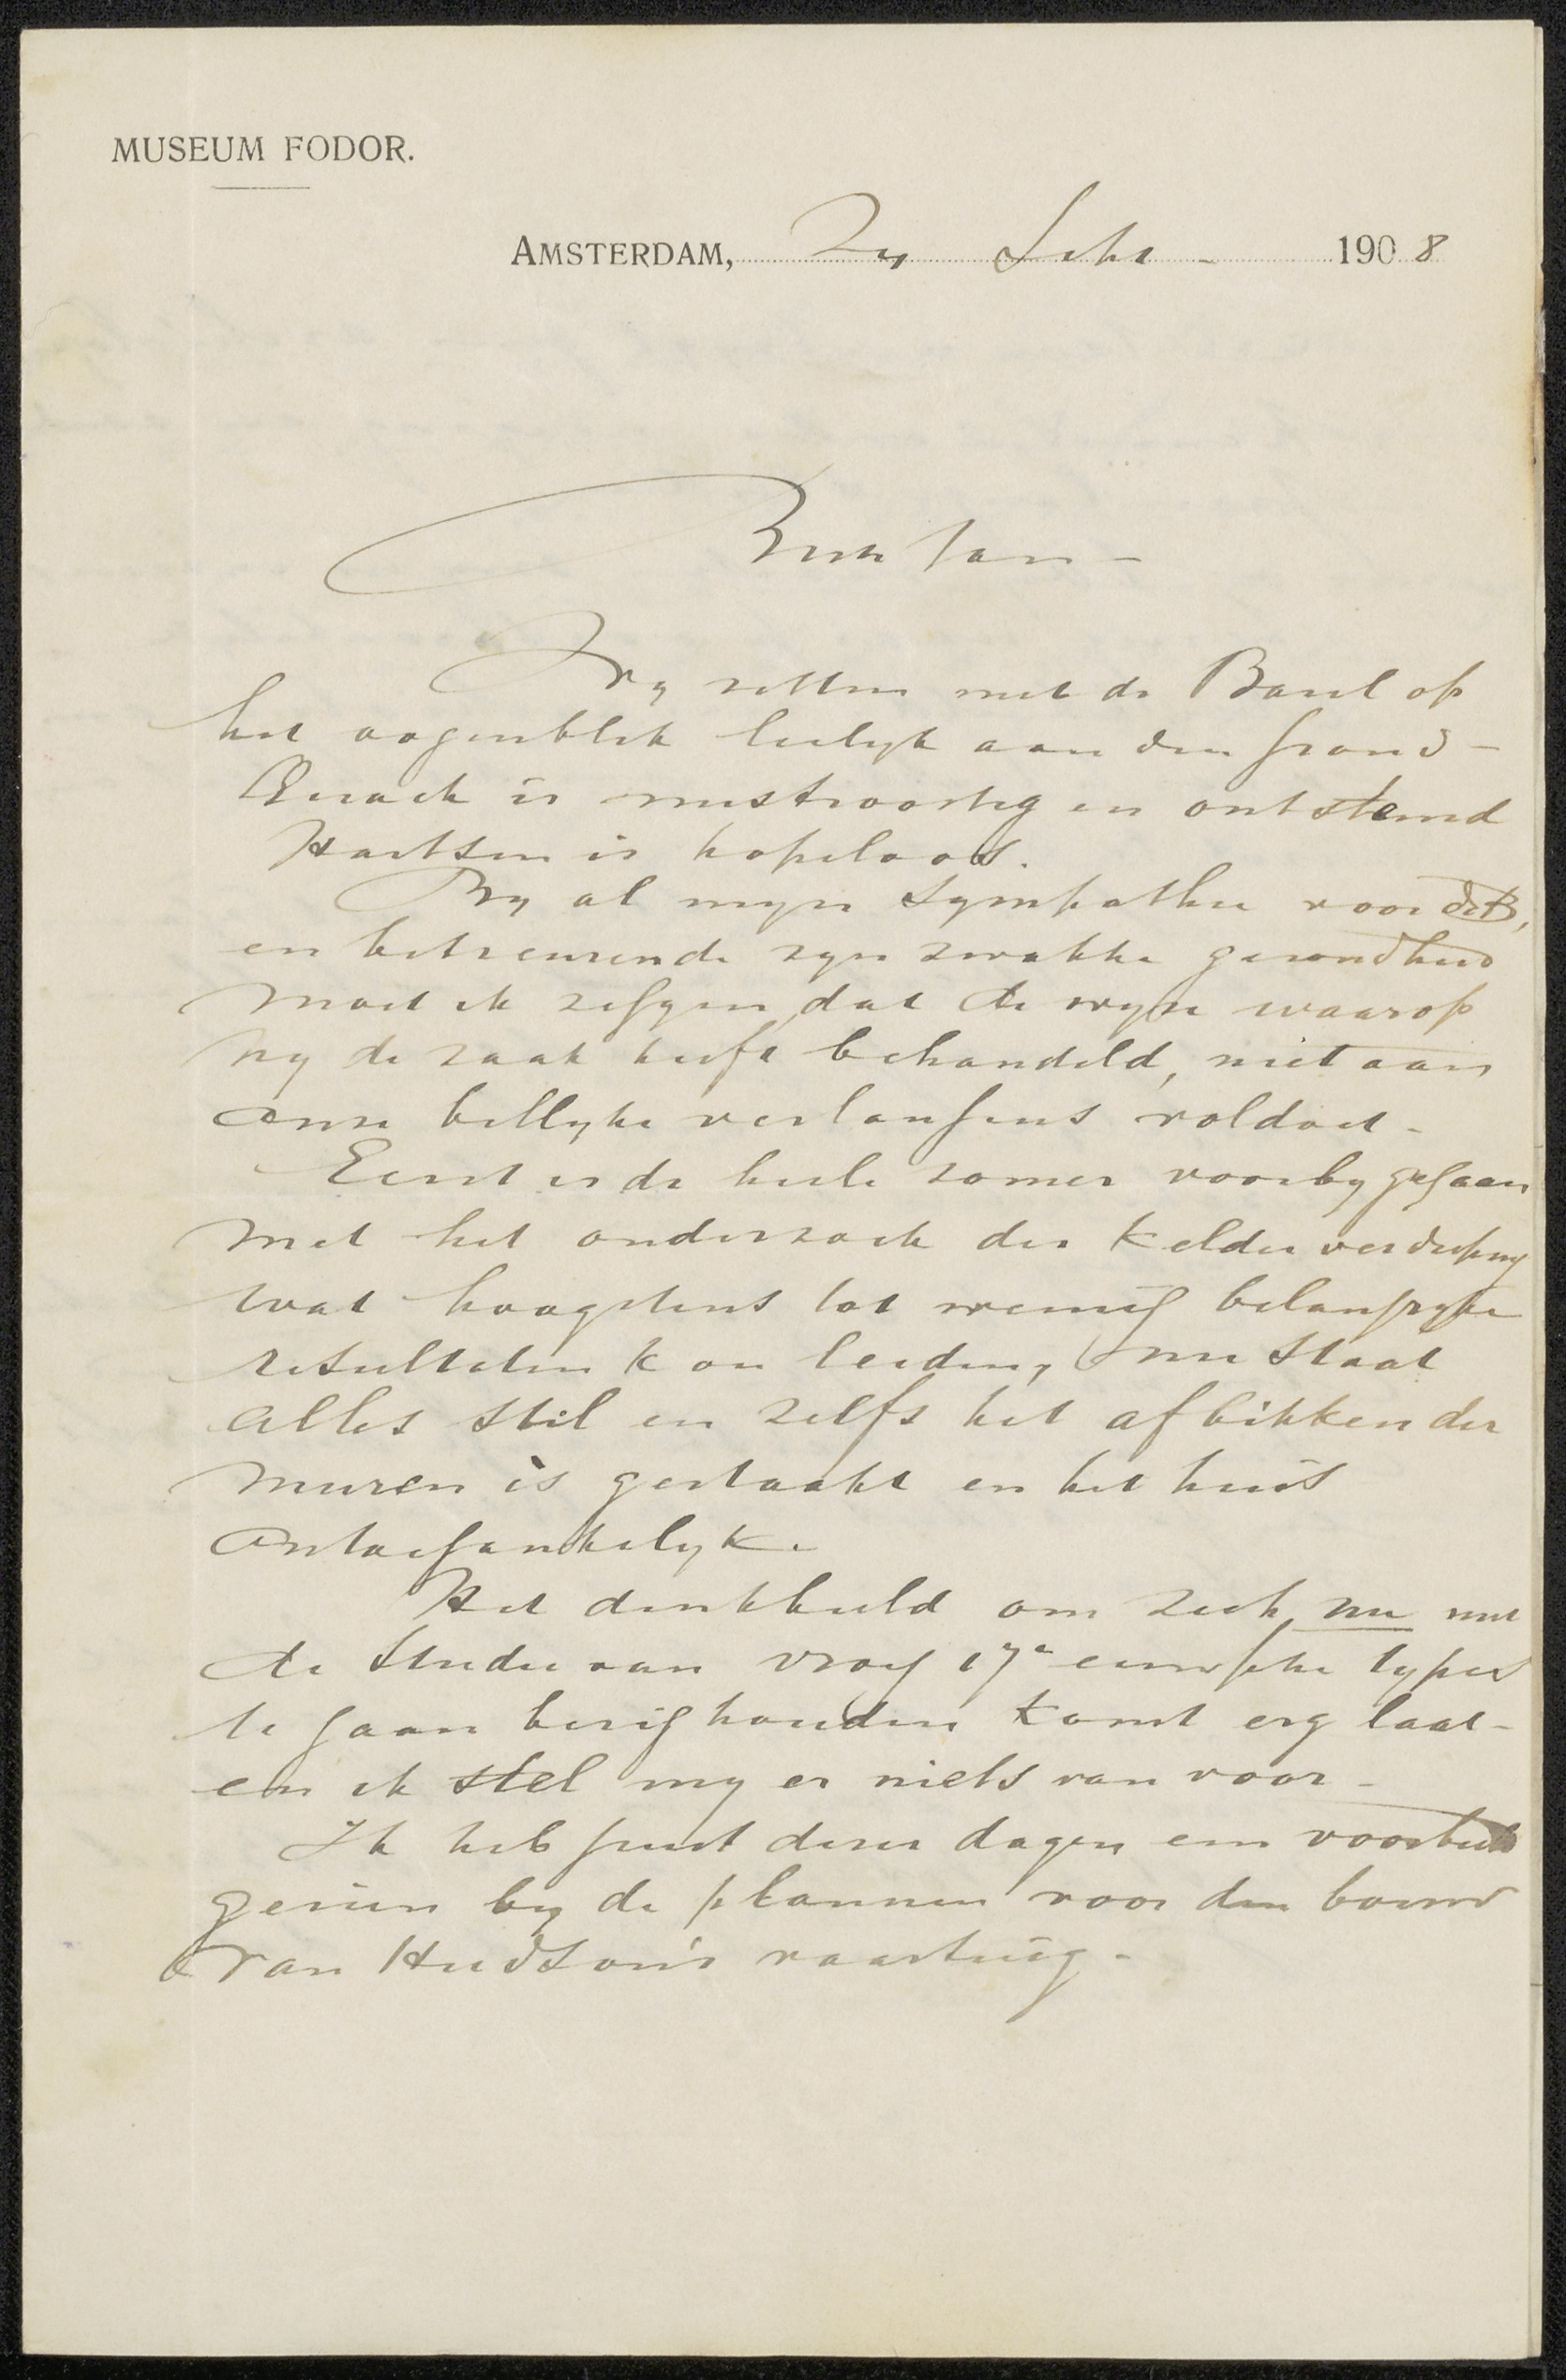 MUSEUM FODOR.
AMSTERDAM, 24 Sept - 1908
Beste Jan -
Wy zitten met de Bazel op
het oogenblik leelyk aan den grond -
Quack is mistroostig en ontstemd
Hartsen is hopeloos.
By al myn sympathie voor de B,
en betreurende zyn zwakke gezondheid
moet ik zeggen, dat de wyze waarop
hy de zaak heeft behandeld, niet aan
onze billyke verlangens voldoet -
Eerst is de heele zomer voorby gegaan
met het onderzoek der kelder verdieping
wat hoogstens tot weinig belangryke
resultaten kon leiden, nu staat
alles stil en zelfs het afbikken der
muren is gestaakt en het huis
ontoegankelyk.
Het denkbeeld om zich nu met
de studie van vroeg 17e eeuwsche types
te gaan bezig houden komt erg laat -
en ik stel my er niets van voor -
Ik heb juist dezer dagen een voorbeeld
gezien by de plannen voor den bouw
van Hudson's vaartuig -